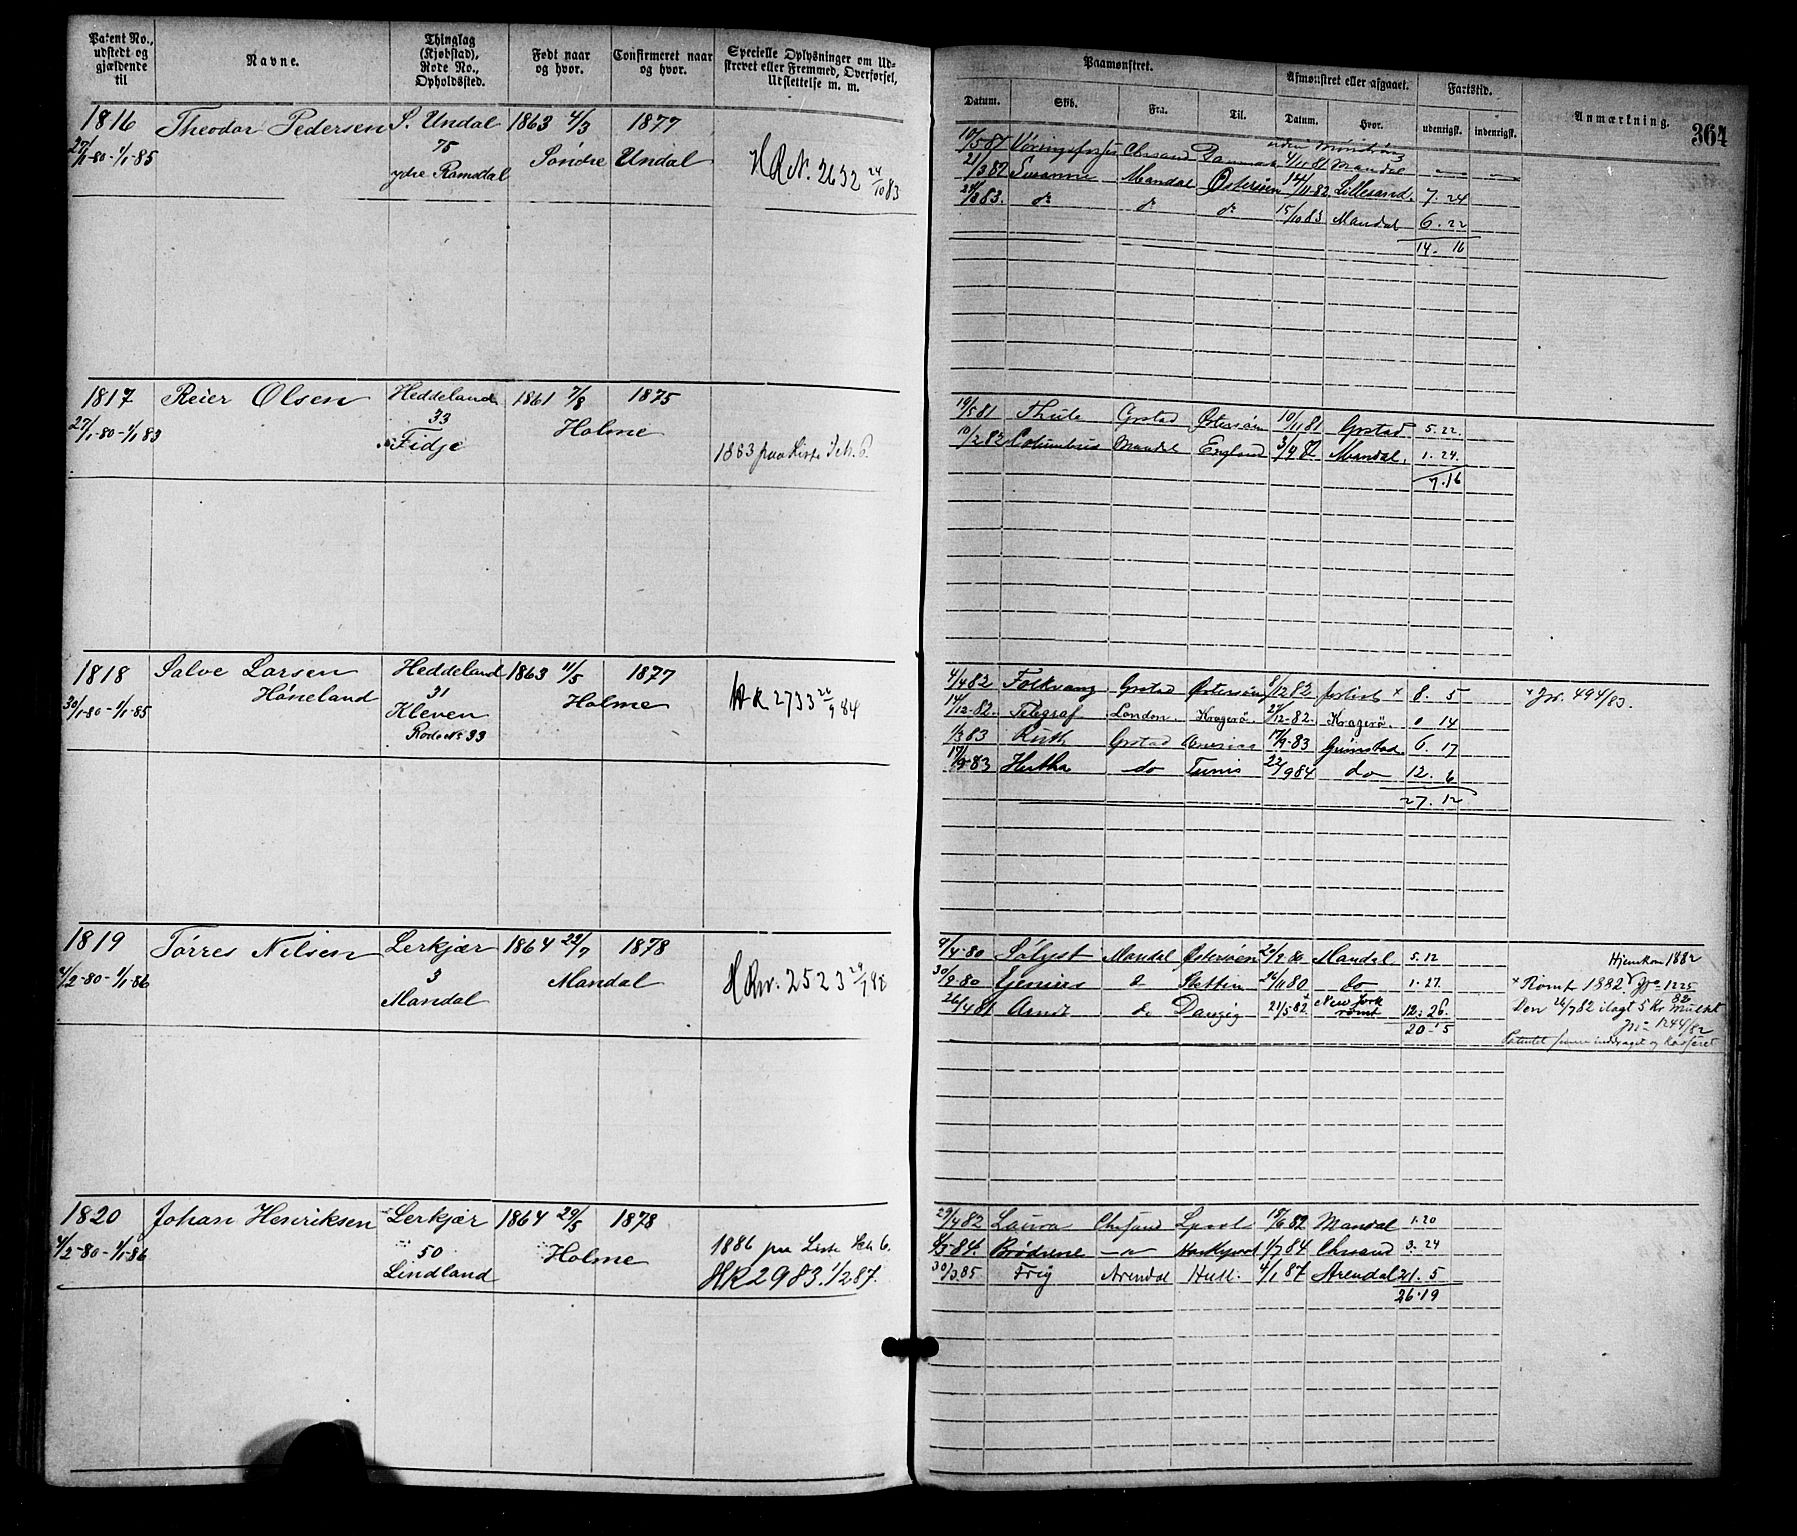 Patent No., udstedt og gjældende til
Navne.
Thinglag (Kjøbstad), Rode No., Opholdssted.
Født naar og hvor.
Confirmeret naar og hvor.
Specielle Oplysninger om Udskrevet eller Fremmed, Overførsel, Udslettelse m. m.
Paamønstret.
Afmønstret eller afgaaet.
Fartstid.
Anmærkning.
364
Datum. Skib. Fra. Til. Datum. Hvor. udenrigst. indenrigst.
1816 Theodor Pedersen S. Undal 1863 4/3 1877
27/1-80-1/1-85 75 Søndre Undal
ydre Ramsdal
HR N. 2632 24/10 83
Danmark 4/11 81 Mandal
21/3 82 Susanne Mandal Østersøn 14/11-82 Lillesand. 7. 24
do do do 15/10 83 Mandal 6. 22
14. 16
1817 Reier Olsen Heddeland 1861 7/8 1875
27/1-80-1/1 83 33 Holme
Fidje
1883 paa Liste
19/5 81 Thule Grstad Østersøn 10/11 81 Grstad 5. 22.
10/2 82 Columbus Mandal England 3/4 82 Mandal. 1. 24.
7. 16
1818 Salve Larsen Heddeland 1863 11/5 1877
Håneland 31 Holme
30/1-80-1/1-85 Kleven
Rode No 33
HR 2733 26/9 84
4/4 82 Folkvang Grstad Østersøn 8/12 82 forlist + 8. 5 + Jr. 494/83.
14/12-82. Telegraf London. Kragerø. 27/12-82. Kragerø. 0 14
1/3 83 Ruth Grstad 17/9-83 Grimstad 6. 17
17/9-83 Hertha do Tunis 22/9 84 do 12. 6
27. 12
1819 Tørres Nilsen Lerkjær 1864 22/7 1878
4/2-80-1/1-86 3 Mandal
Mandal
2523 29/7 82
9/4-80 Sølyst Mandal Østersøen Mandal 5. 12 Hjemkom 1882
Stettin 14/11 80 do 1. 27. + Rømt 1882
26/4 81 Arndt do Danzig 21/5-82 + New York rømt 12. 26. Den 26/7 82 ilagt 5 Kr Mulkt
20. 5 Jr 1244/82
Patentet inddraget og kasseret
1820 Johan Henriksen Lerkjær 1864 29/5 1878
4/2-80-1/1-86 50 Holme
Lindland
1886 paa Liste Litr. 6.
HR 2983. 1/2 87.
29/4 82 Laura Chrsand Lpool 17/6 82 Mandal 1. 20
Brødrene 1/7 84 Chrsand 3. 24
30/3 85 Frig Arendal Hull. 4/1 87 Arendal 21. 5
26. 19